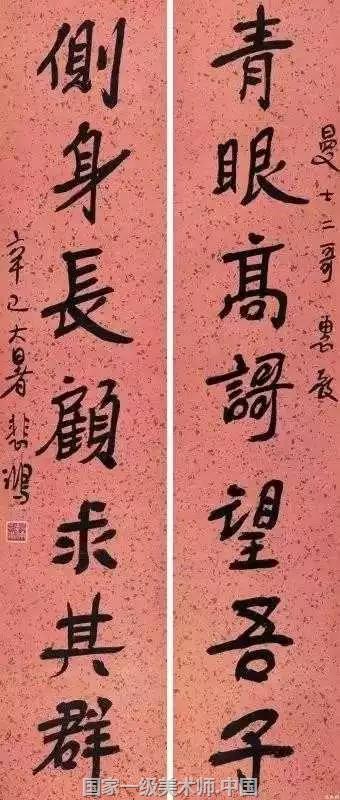 曼士二哥惠教
青眼高謌望吾子
側身長顧求其群
辛巳大暑悲鴻
国家一级美术师.中国